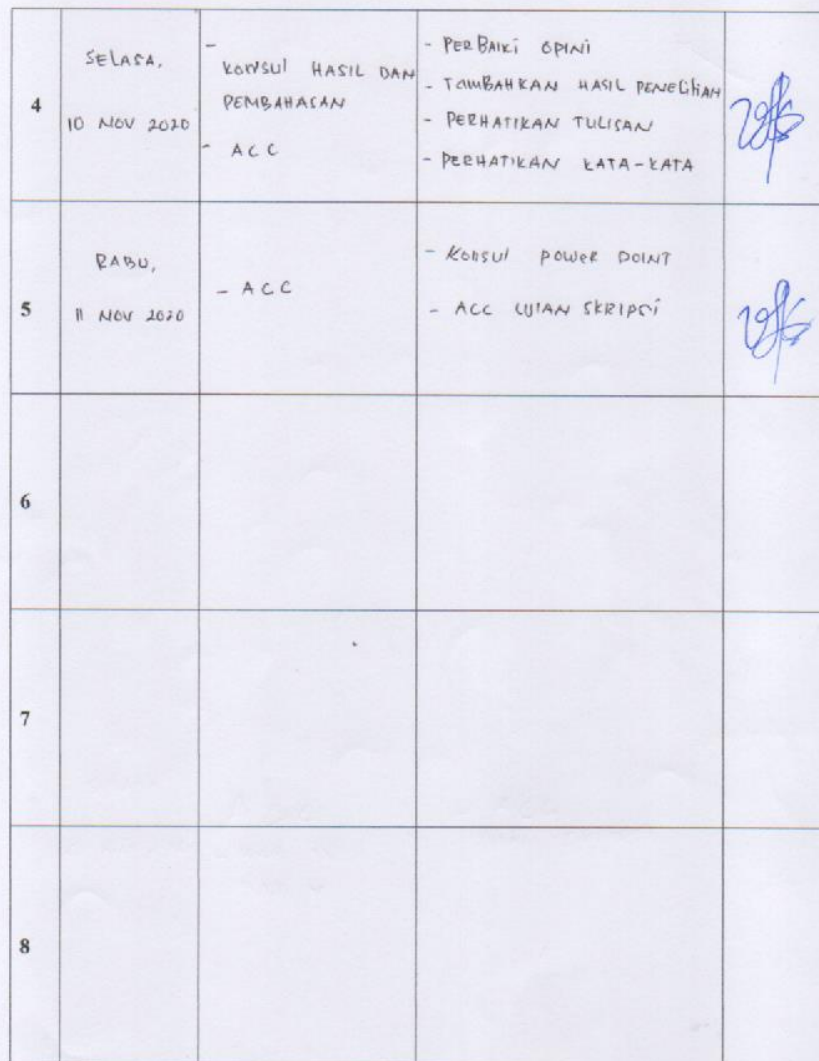 4
SELASA,
10 NOV 2020
-
KONSUl HASIL DAN
PEMBAHASAN
- ACC
- PERBAIKI OPINI
- TAMBAHKAN HASIL PENELITIAN
- PERHATIKAN TULISAN
- PERHATIKAN KATA-KATA
5
RABU,
11 NOV 2020
- ACC
- KONSUl POWER POINT
- ACC UJIAN SKRIPSI
6
7
8